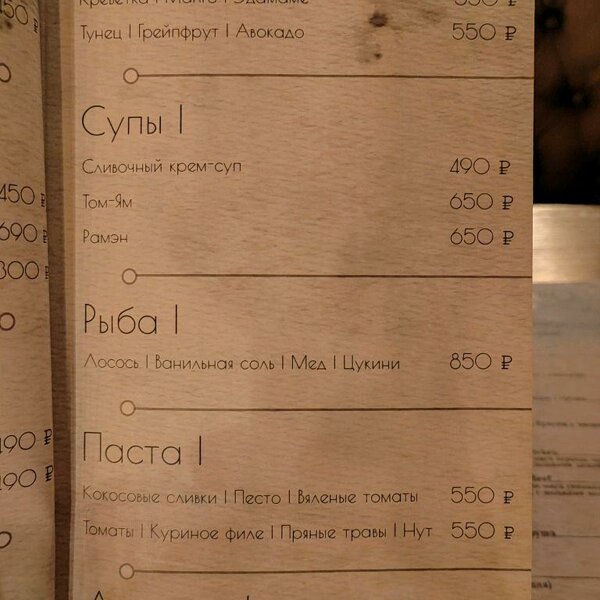 Креветка | Манго | Эдамаме 550 ₽
Тунец | Грейпфрут | Авокадо 550 ₽
Супы |
Сливочный крем-суп 490 ₽
Том-Ям 650 ₽
Рамэн 650 ₽
Рыба |
Лосось | Ванильная соль | Мед | Цукини 850 ₽
Паста |
Кокосовые сливки | Песто | Вяленые томаты 550 ₽
Томаты | Куриное филе | Пряные травы | Нут 550 ₽
450 ₽
690 ₽